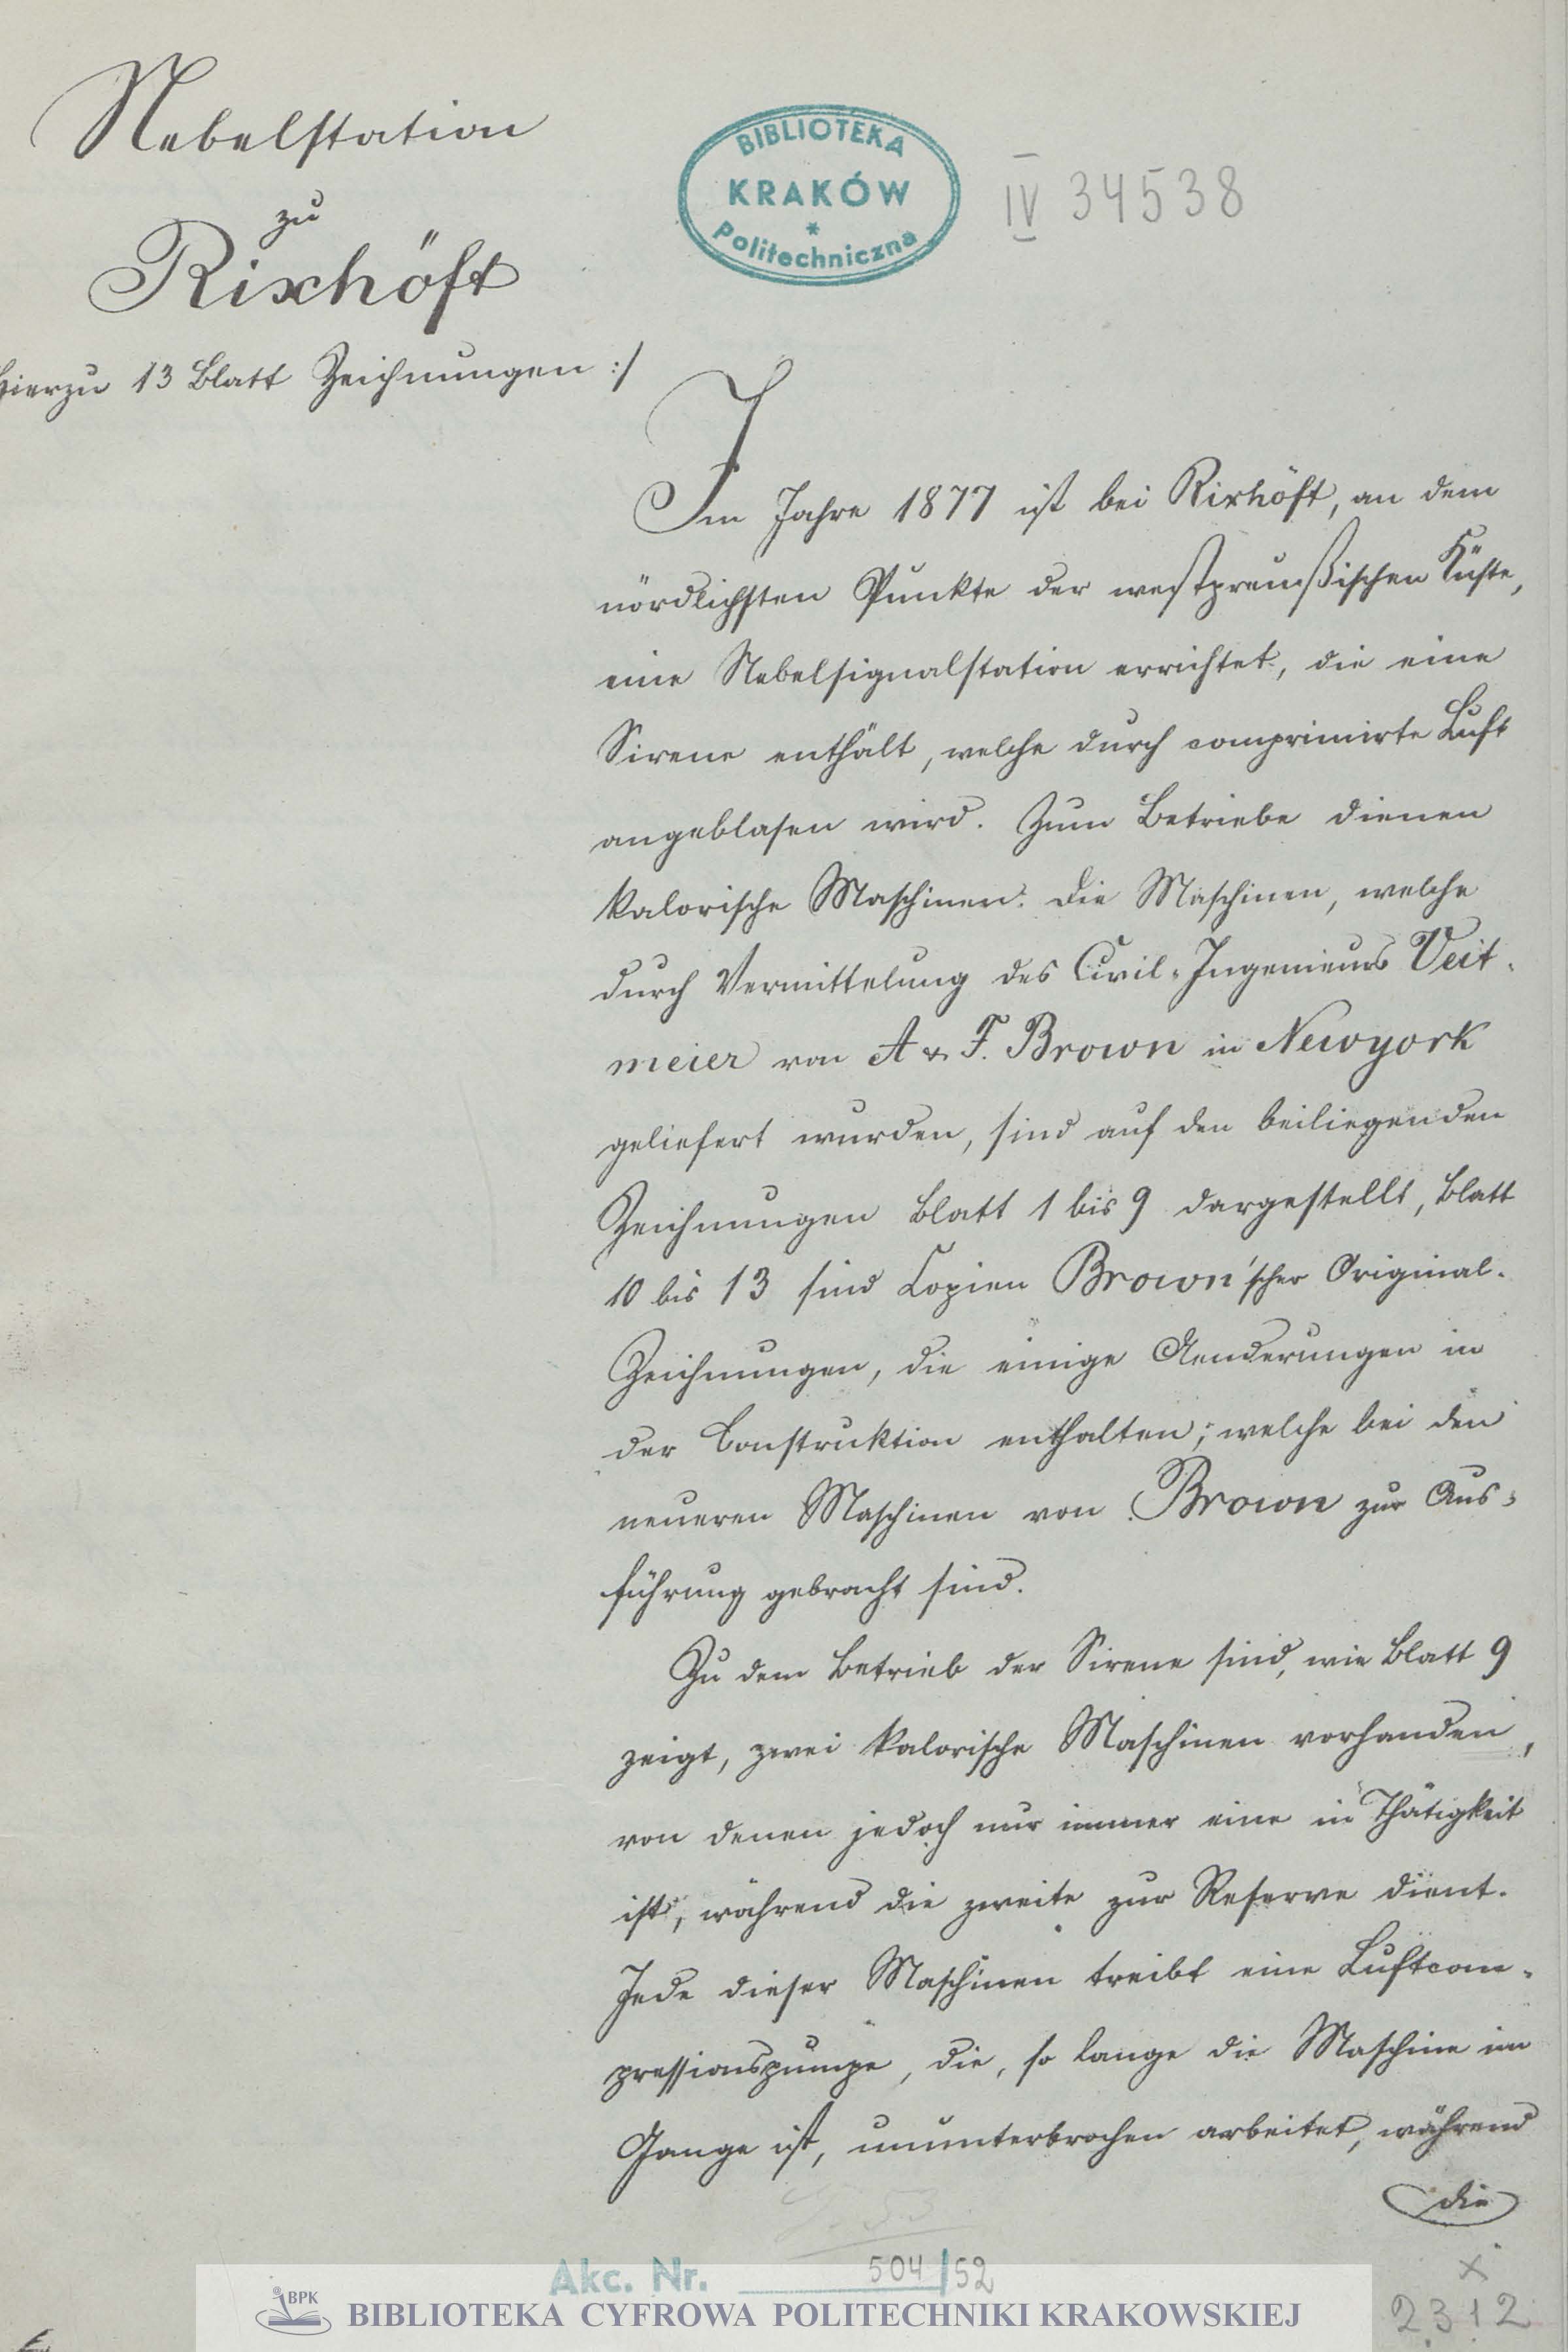 Nebelstation
zu
Rixhöft
Hierzu 13 Blatt Zeichnungen :/
BIBLIOTEKA
KRAKÓW
*
Politechniczna
IV 34538
Im Jahre 1877 ist bei Rixhöft, an dem
nördlichsten Punkte der westpreußischen Küste,
eine Nebelsignalstation errichtet, die eine
Sirene enthält, welche durch comprimirte Luft
angeblasen wird. Zum Betriebe dienen
kalorische Maschinen. Die Maschinen, welche
durch Vermittelung des Civil-Ingenieurs Veit-
meier von A & F. Brown in Newyork
geliefert wurden, sind auf den beiliegenden
Zeichnungen Blatt 1 bis 9 dargestellt, Blatt
10 bis 13 sind Copien Brown'scher Original-
Zeichnungen, die einige Aenderungen in
der Construktion enthalten, welche bei den
neueren Maschinen von Brown zur Aus-
führung gebracht sind.
Zu dem Betrieb der Sirene sind, wie Blatt 9
zeigt, zwei kalorische Maschinen vorhanden,
von denen jedoch nur immer eine in Thätigkeit
ist, während die zweite zur Reserve dient.
Jede dieser Maschinen treibt eine Luftcom-
pressionspumpe, die, so lange die Maschine im
Gange ist, ununterbrochen arbeitet, während
die
Akc. Nr. 504/52
BPK
BIBLIOTEKA CYFROWA POLITECHNIKI KRAKOWSKIEJ
x
2312